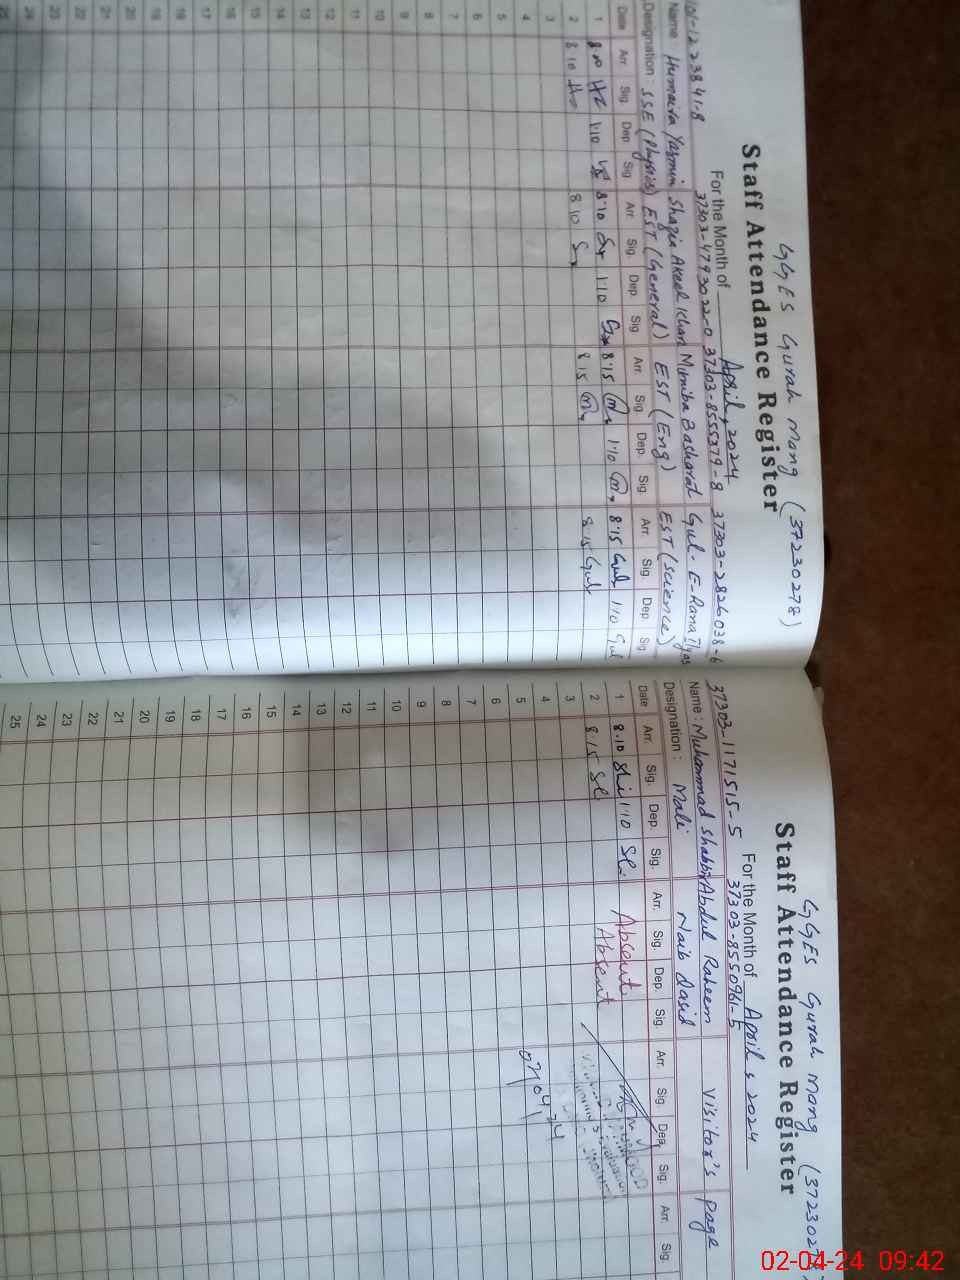 GGES Gurah Mang (37230278)
Staff Attendance Register
For the Month of April, 2024
37303-4793022-0 37303-8555379-8 37303-2826038-6
Name: Humaira Yasmin Shazia Akeel Khan Muniba Basharat Gul-E-Rana Ilyas
Designation SSE (Physics) EST (General) EST (Eng) EST (Science)
Date Arr. Sig. Dep. Sig Arr. Sig. Dep. Sig Arr. Sig. Dep. Sig Arr. Sig Dep. Sig
1 8:10 1:10 8:10 1:10 8:15 1:10 8:15 Gul 1:10 Gul
2 8:10 8:10 8:15 8:15 Gul
3
4
5
6
7
8
9
10
11
12
13
14
15
16
17
18
19
20
21
22
23
24
25
GGES Gurah Mang (37230278
Staff Attendance Register
For the Month of April, 2024
37303-1171515-5 37303-8550961-5
Name: Muhammad Shabbir Abdul Raheem Visitor's Page
Designation: Mali Naib Qasid
Date Arr. Sig. Dep. Sig. Arr. Sig. Dep. Sig. Arr. Sig. Dep. Sig. Arr. Sig.
1 8:10 1:10 Absent
2 8:15 Absent
3
4
5
6
7
8
9
10
11
12
13
14
15
16
17
18
19
20
21
22
23
24
25
02-04-24 09:42